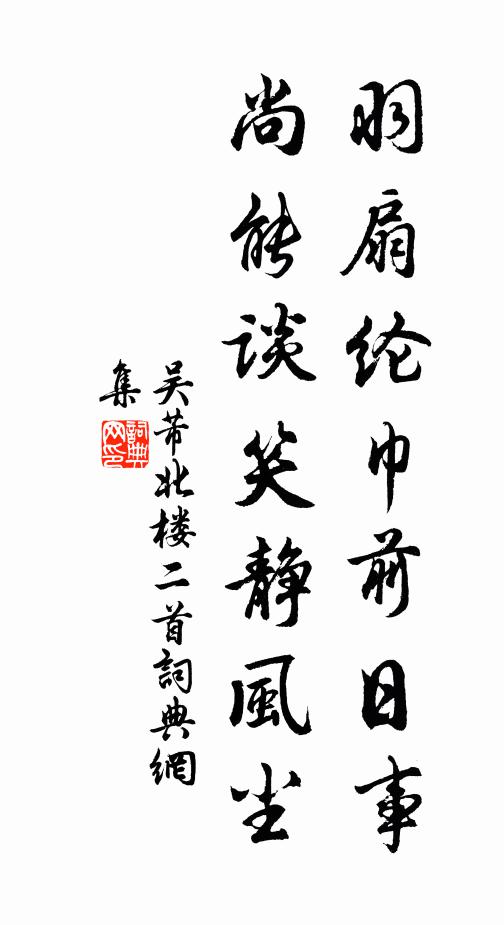 羽扇纶巾前日事
尚能谈笑静風尘
吴芾北楼二首詞典網
集
詞典网印